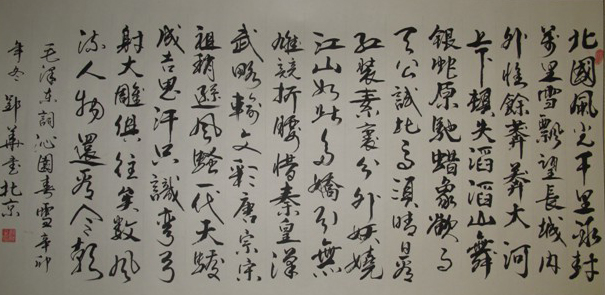 北國風光千里冰封
萬里雪飄望長城内
外惟餘莽莽大河
上下頓失滔滔山舞
銀蛇原馳蠟象欲與
天公試比高須晴日看
紅裝素裹分外妖嬈
江山如此多嬌引無
雄競折腰惜秦皇漢
武略輸文彩唐宗宋
祖稍遜風騷一代天驕
成吉思汗只識彎弓
射大雕俱往矣數風
流人物還看今朝
毛澤東詞沁園春雪辛卯
年冬鄭華書北京